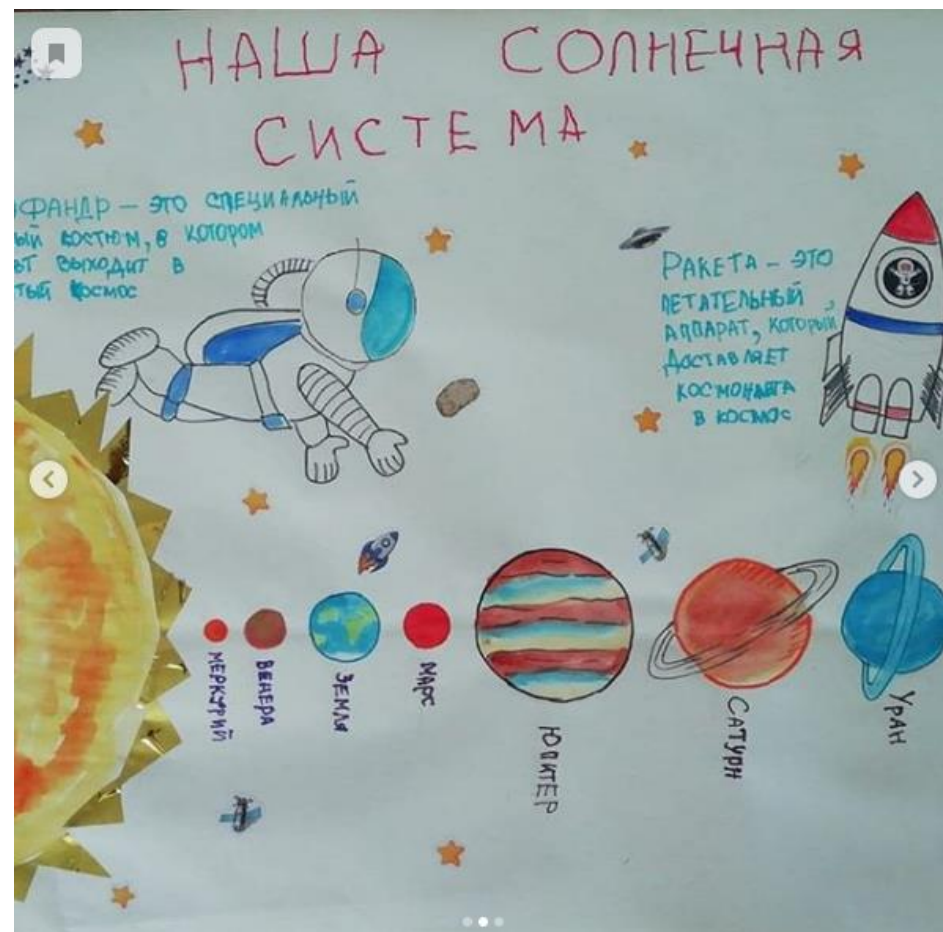 НАША СОЛНЕЧНАЯ
СИСТЕМА
ФАНДР – ЭТО СПЕЦИАЛЬНЫЙ
ЫЙ КОСТЮМ, В КОТОРОМ
ВЫХОДИТ В
ТЫЙ КОСМОС
РАКЕТА – ЭТО
ЛЕТАТЕЛЬНЫЙ
АППАРАТ, КОТОРЫЙ
ДОСТАВЛЯЕТ
КОСМОНАВТА
В КОСМОС
МЕРКУРИЙ
ВЕНЕРА
ЗЕМЛЯ
МАРС
ЮПИТЕР
САТУРН
УРАН